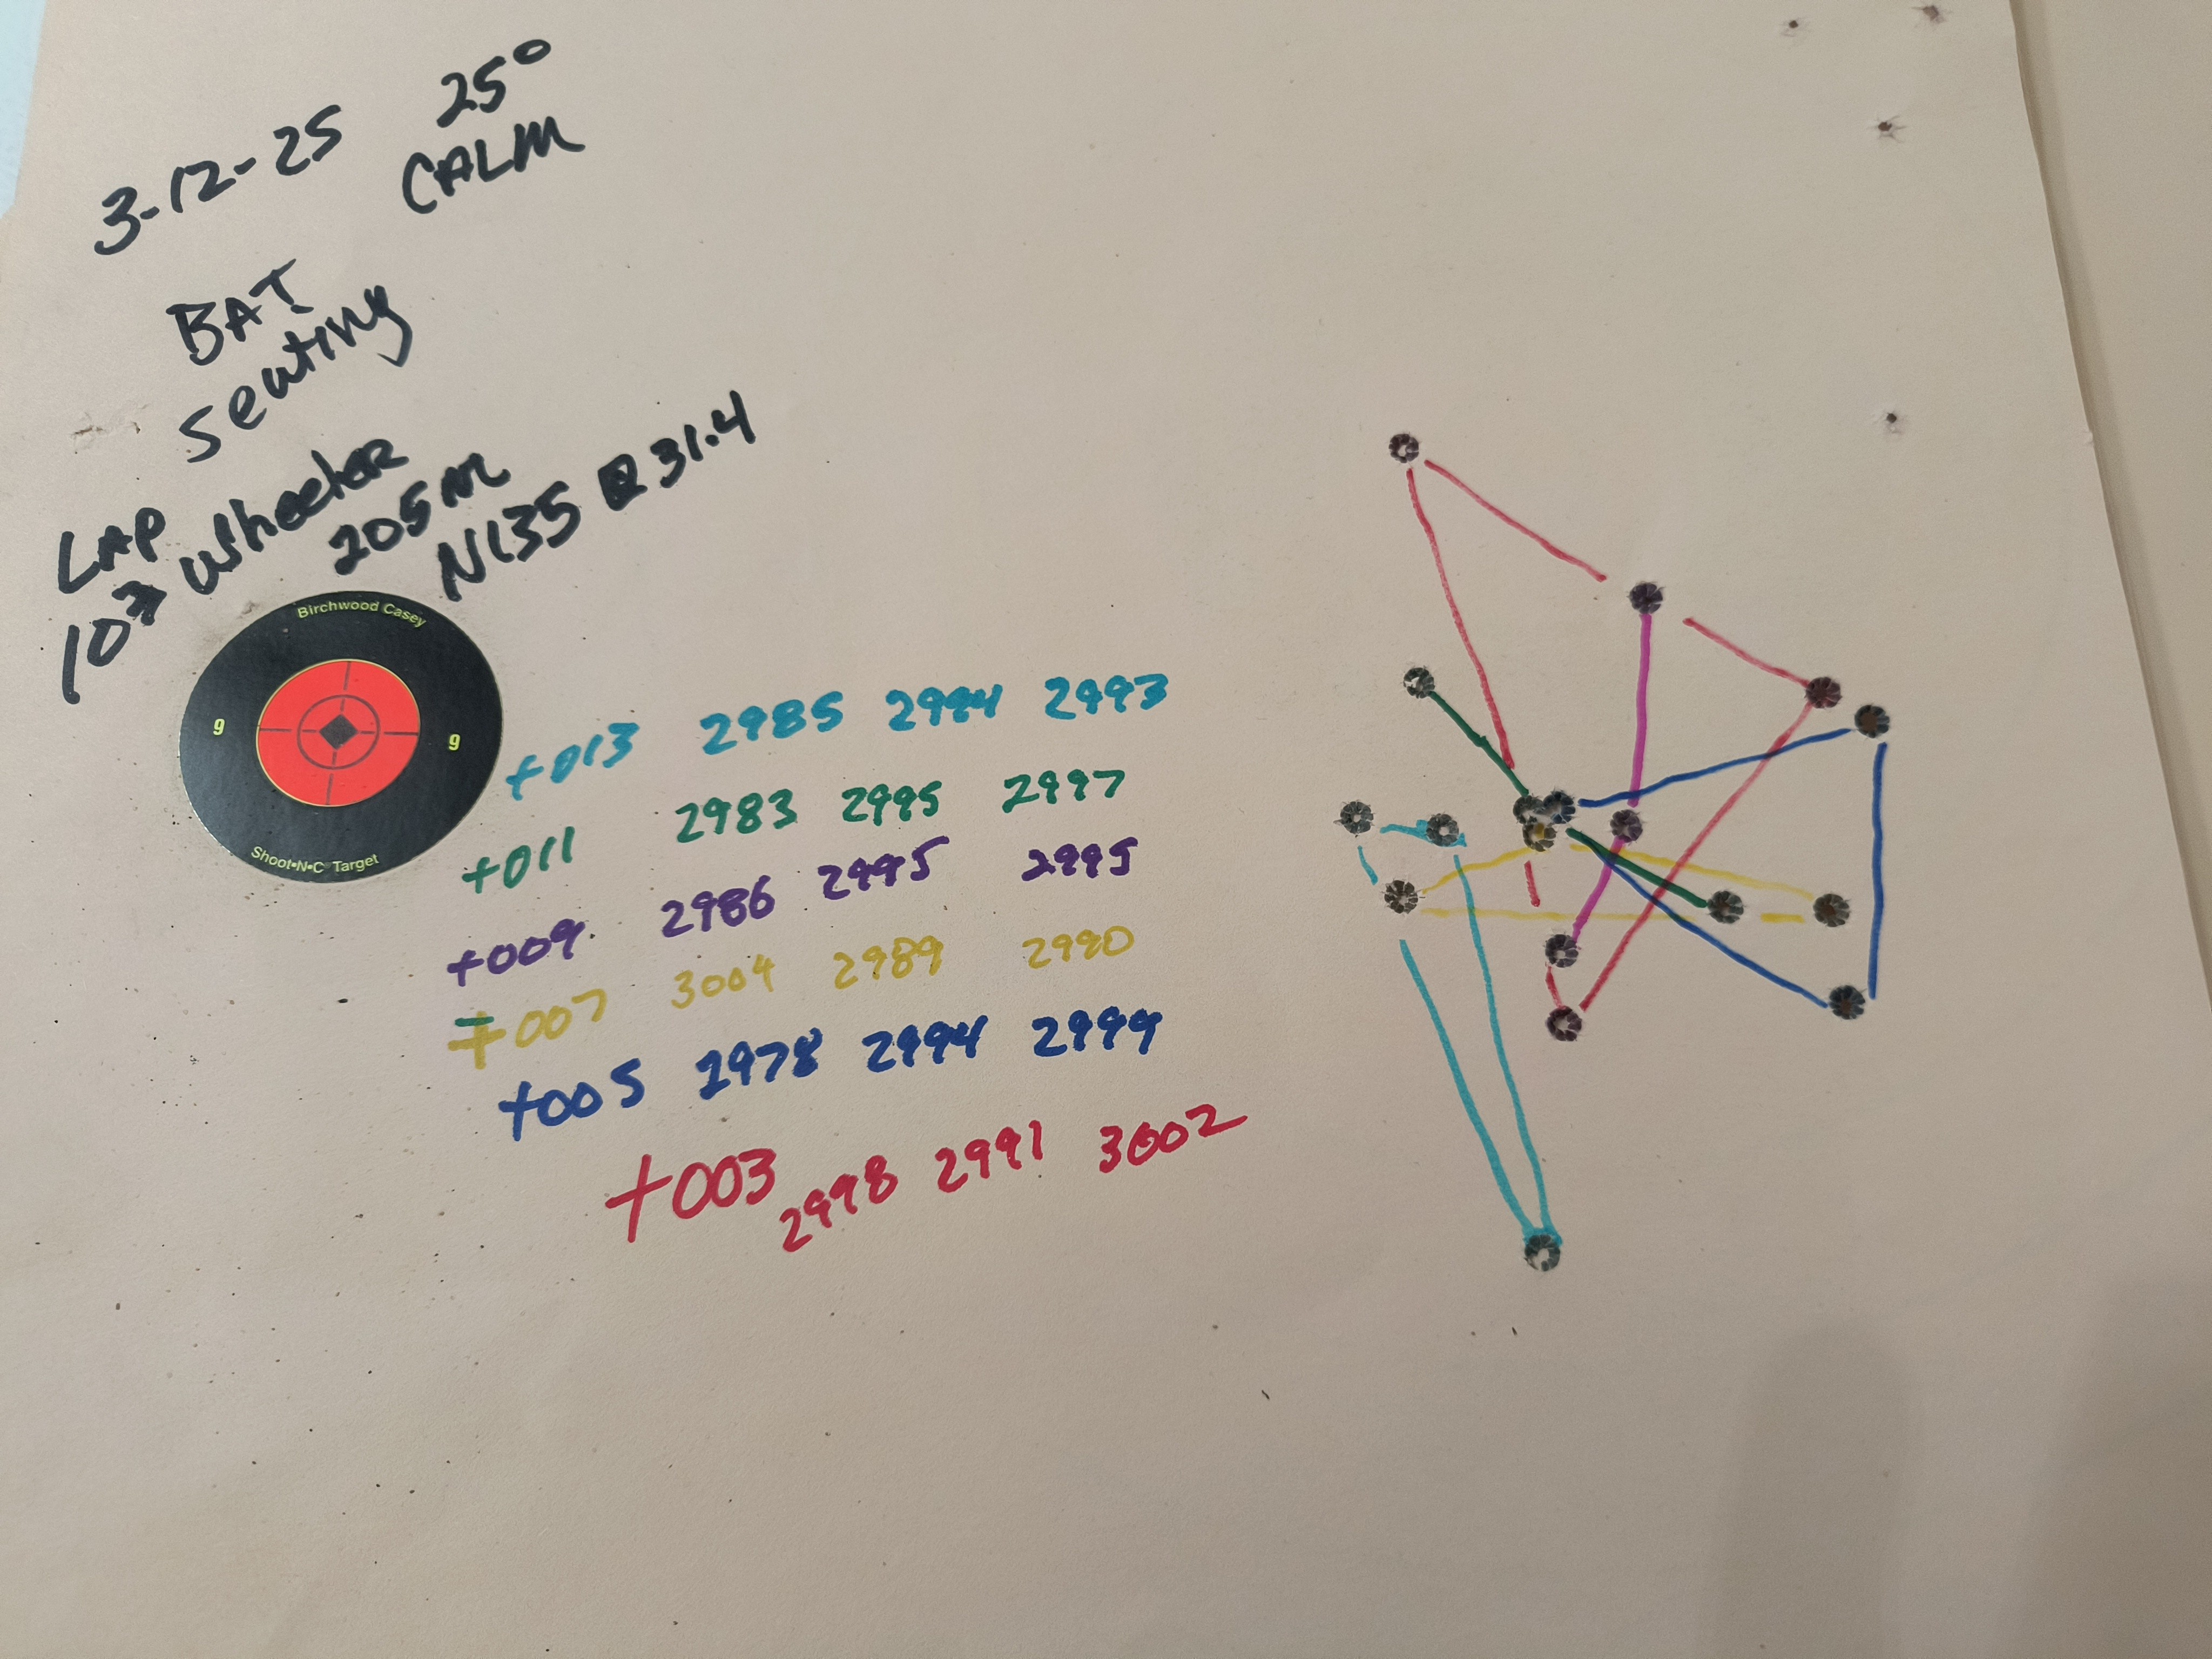 3-12-25 25°
CALM
BAT
seating
LAP
103 wheeler
205M
N135 @ 31.4
Birchwood Casey
9 9
Shoot•N•C Target
+013 2985 2994 2993
+011 2983 2995 2997
+009 2986 2995 2995
+007 3004 2989 2990
+005 2978 2994 2999
+003 2998 2991 3002